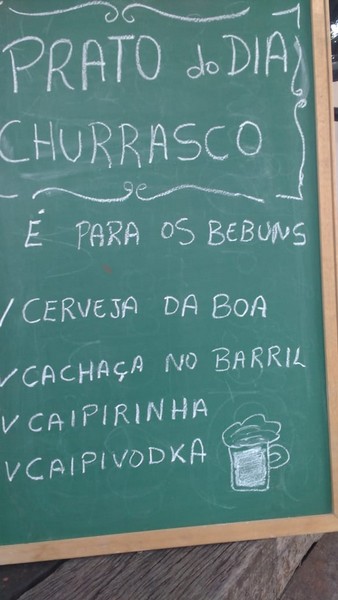 PRATO do DIA
CHURRASCO
É PARA OS BEBUNS
✓ CERVEJA DA BOA
✓ CACHAÇA NO BARRIL
✓ CAIPIRINHA
✓ CAIPIVODKA